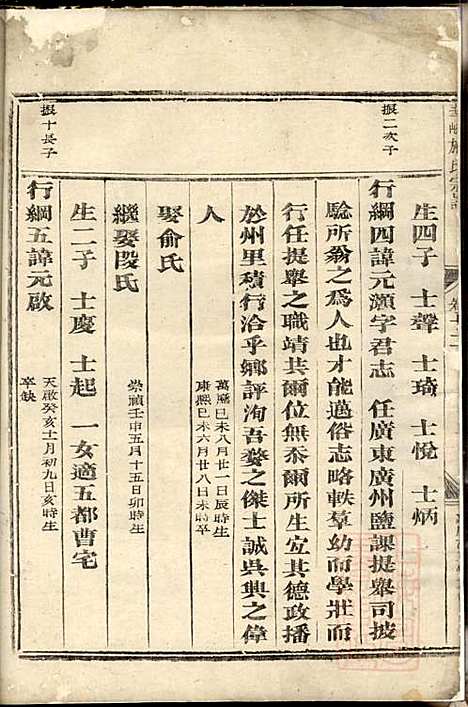 氏宗譜 卷十二
生四子 士聲 士琦 士悅 士炳
振二次子
行綱四諱元灝字君志 任廣東廣州鹽課提舉司披
驗所 之為人也才能邁俗志略軼羣幼而學壯而
行任提舉之職靖共爾位無忝爾所生宜其德政播
於州里積行洽乎鄉評洵吾婺之傑士誠吳興之偉
人
萬曆己未八月廿一日辰時生
康熙己未六月廿八日未時卒
娶俞氏
繼娶段氏
崇禎壬申五月十五日卯時生
生二子 士慶 士起 一女適五都曹宅
振十長子
行綱五諱元啟
天啟癸亥十一月初九日亥時生
卒缺